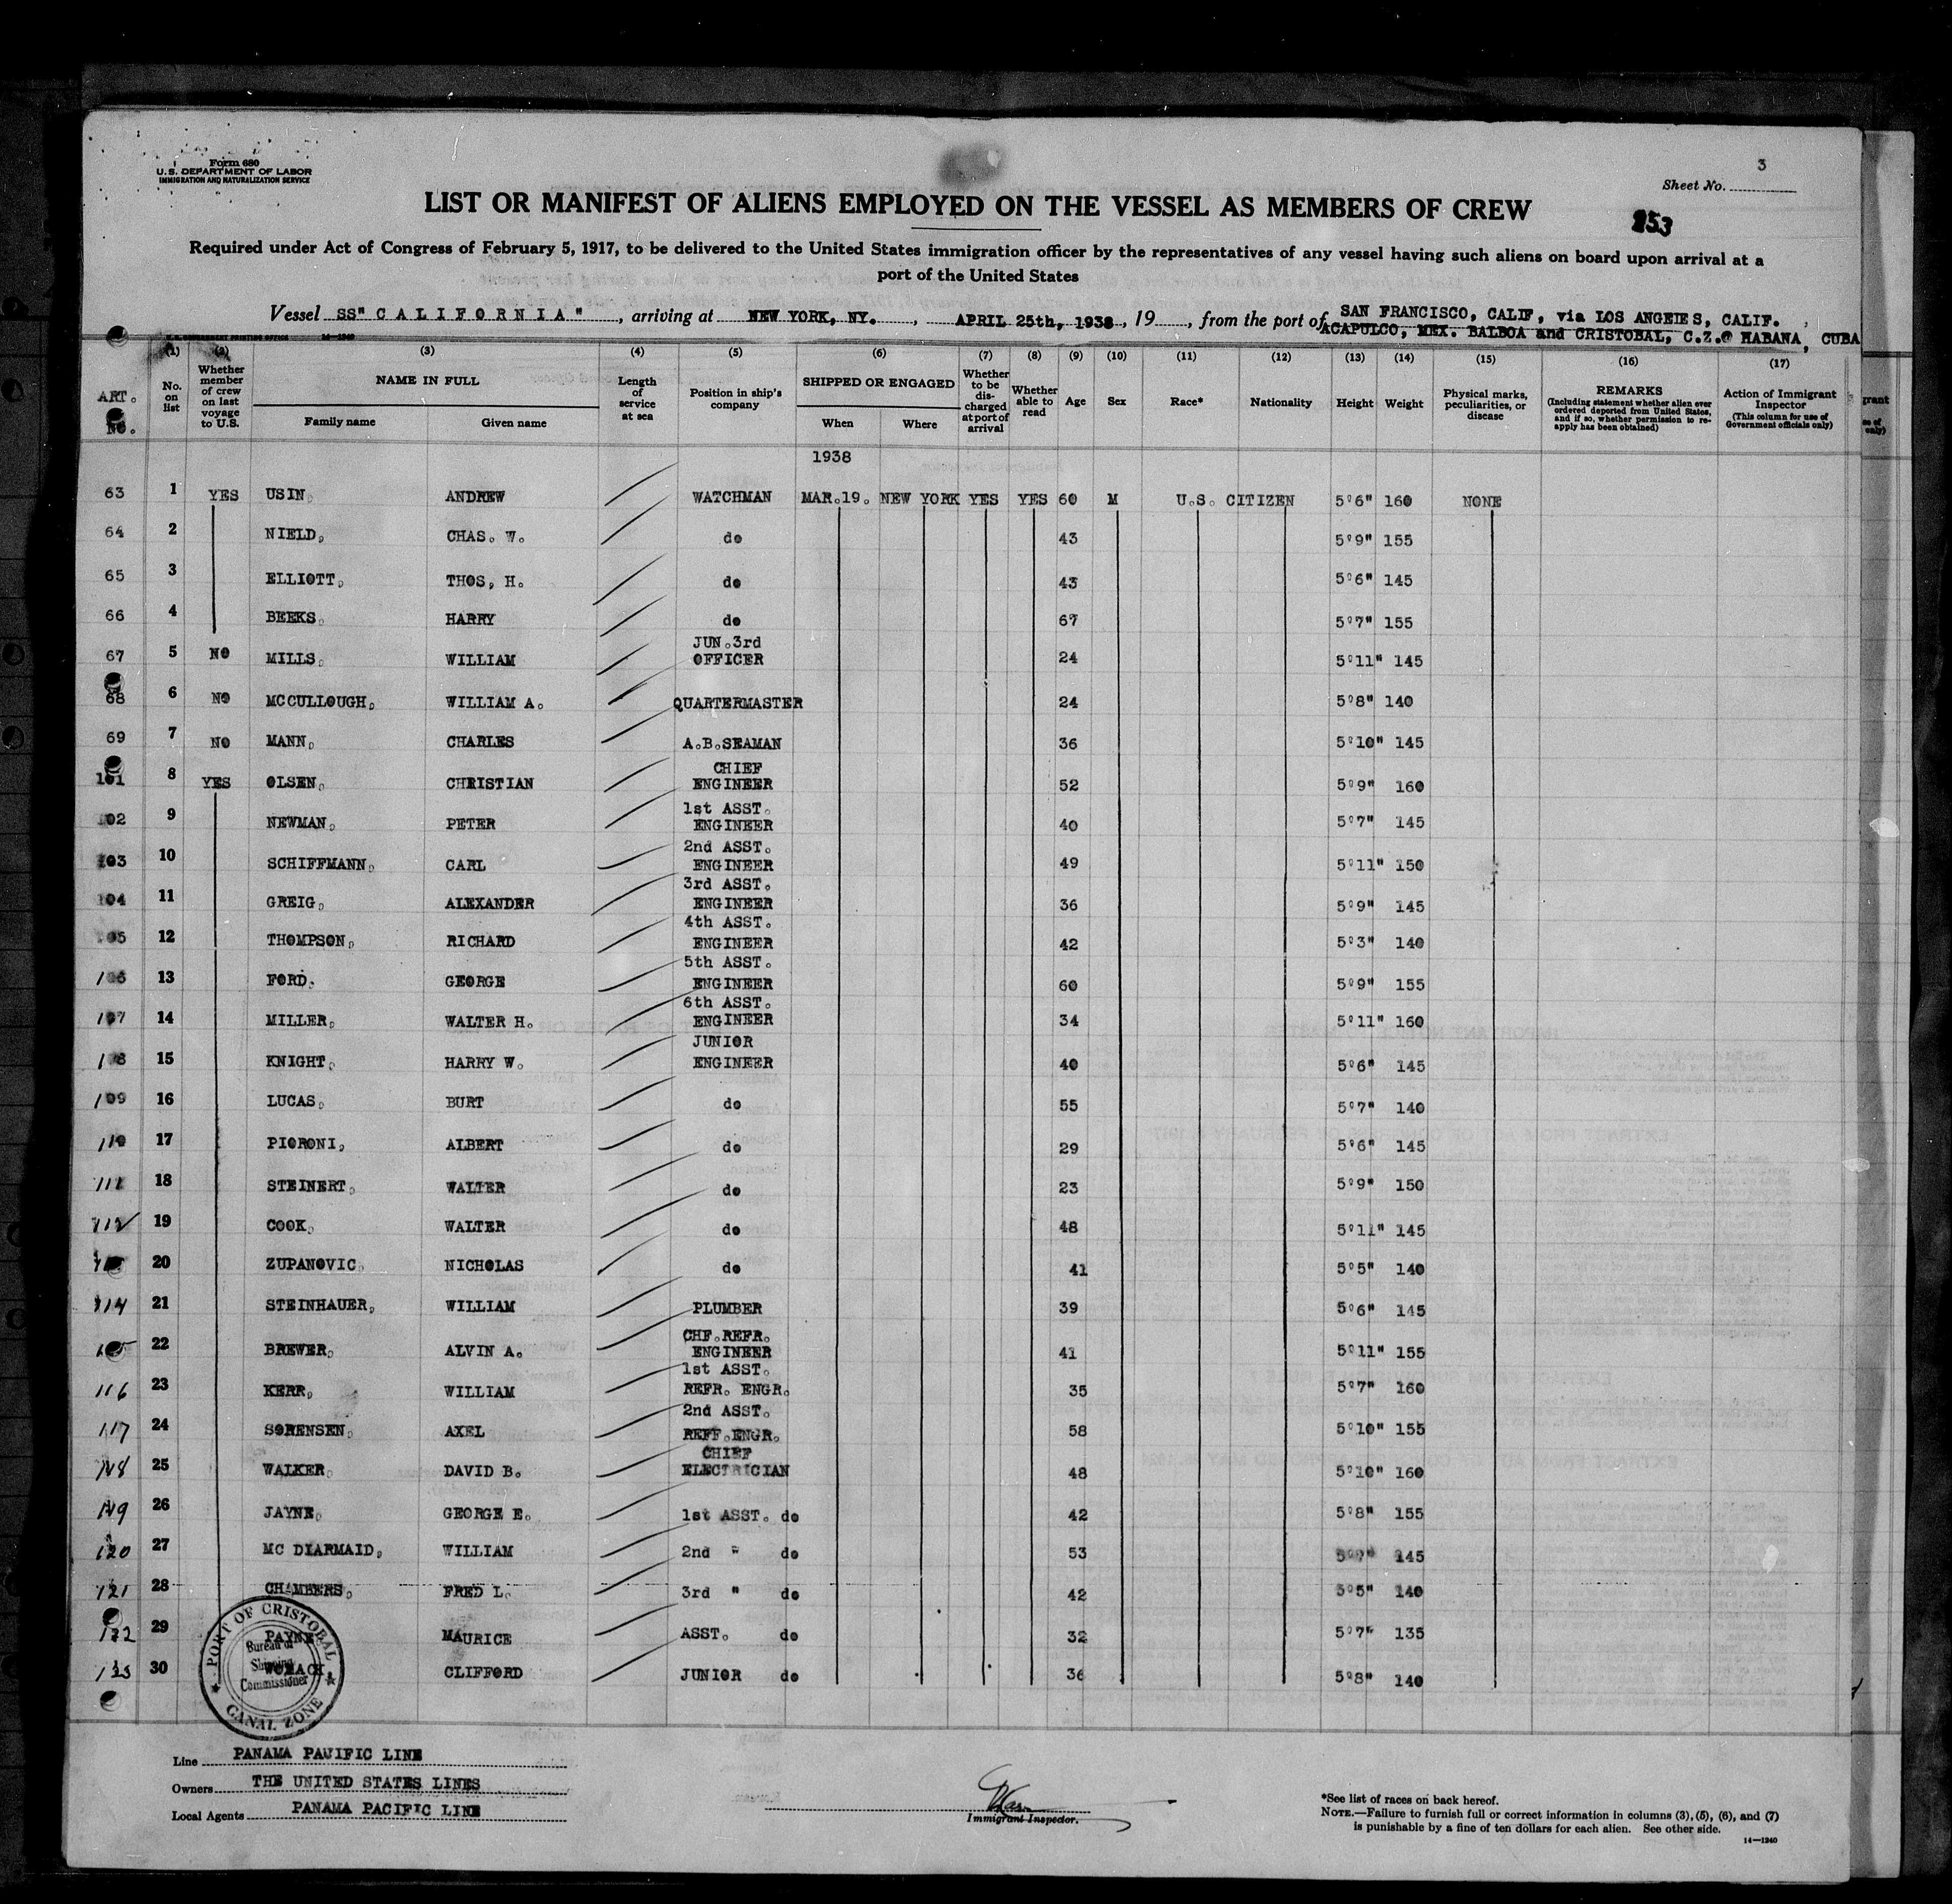 Form 680
U.S. DEPARTMENT OF LABOR
IMMIGRATION AND NATURALIZATION SERVICE
3
Sheet No.
LIST OR MANIFEST OF ALIENS EMPLOYED ON THE VESSEL AS MEMBERS OF CREW
853
Required under Act of Congress of February 5, 1917, to be delivered to the United States immigration officer by the representatives of any vessel having such aliens on board upon arrival at a
port of the United States
Vessel SS" CALIFORNIA", arriving at NEW YORK, NY., APRIL 25th, 1938, 19, from the port of SAN FRANCISCO, CALIF, via LOS ANGELES, CALIF.,
ACAPULCO, MEX. BALBOA and CRISTOBAL, C.Z. HABANA, CUBA
(1) (2) (3) (4) (5) (6) (7) (8) (9) (10) (11) (12) (13) (14) (15) (16) (17)
ART. No. No. on list Whether member of crew on last voyage to U.S. NAME IN FULL Family name Given name Length of service at sea Position in ship's company SHIPPED OR ENGAGED When Where Whether to be discharged at port of arrival Whether able to read Age Sex Race* Nationality Height Weight Physical marks, peculiarities, or disease REMARKS (Including statement whether alien ever ordered deported from United States, and if so, whether permission to reapply has been obtained) Action of Immigrant Inspector (This column for use of Government officials only)
1938
63 1 YES USIN, ANDREW WATCHMAN MAR.19. NEW YORK YES YES 60 M U.S. CITIZEN 5'6" 160 NONE
64 2 NIELD, CHAS. W. do 43 5'9" 155
65 3 ELLIOTT, THOS, H. do 43 5'6" 145
66 4 BEEKS. HARRY do 67 5'7" 155
67 5 NO MILLS. WILLIAM JUN.3rd OFFICER 24 5'11" 145
68 6 NO MCCULLOUGH, WILLIAM A. QUARTERMASTER 24 5'8" 140
69 7 NO MANN, CHARLES A.B.SEAMAN 36 5'10" 145
101 8 YES OLSEN, CHRISTIAN CHIEF ENGINEER 52 5'9" 160
102 9 NEWMAN, PETER 1st ASST. ENGINEER 40 5'7" 145
103 10 SCHIFFMANN, CARL 2nd ASST. ENGINEER 49 5'11" 150
104 11 GREIG, ALEXANDER 3rd ASST. ENGINEER 36 5'9" 145
105 12 THOMPSON, RICHARD 4th ASST. ENGINEER 42 5'3" 140
106 13 FORD. GEORGE 5th ASST. ENGINEER 60 5'9" 155
107 14 MILLER, WALTER H. 6th ASST. ENGINEER 34 5'11" 160
108 15 KNIGHT, HARRY W. JUNIOR ENGINEER 40 5'6" 145
109 16 LUCAS, BURT do 55 5'7" 140
110 17 PIORONI, ALBERT do 29 5'6" 145
111 18 STEINERT, WALTER do 23 5'9" 150
112 19 COOK, WALTER do 48 5'11" 145
20 ZUPANOVIC, NICHOLAS do 41 5'5" 140
114 21 STEINHAUER, WILLIAM PLUMBER 39 5'6" 145
22 BREWER, ALVIN A. CHF.REFR. ENGINEER 41 5'11" 155
116 23 KERR, WILLIAM 1st ASST. REFR. ENGR. 35 5'7" 160
117 24 SORENSEN, AXEL 2nd ASST. REFF.ENGR. 58 5'10" 155
118 25 WALKER, DAVID B. CHIEF ELECTRICIAN 48 5'10" 160
119 26 JAYNE, GEORGE E. 1st ASST. do 42 5'8" 155
120 27 MC DIARMAID, WILLIAM 2nd " do 53 145
121 28 CHAMBERS, FRED L. 3rd " do 42 5'5" 140
122 29 PAYNE MAURICE ASST. do 32 5'7" 135
123 30 WOMACK CLIFFORD JUNIOR do 36 5'8" 140
PORT OF CRISTOBAL
Bureau of
Shipping
Commissioner
CANAL ZONE
Line PANAMA PACIFIC LINE
Owners THE UNITED STATES LINES
Local Agents PANAMA PACIFIC LINE
Immigrant Inspector.
*See list of races on back hereof.
NOTE.—Failure to furnish full or correct information in columns (3), (5), (6), and (7)
is punishable by a fine of ten dollars for each alien. See other side.
14—1240